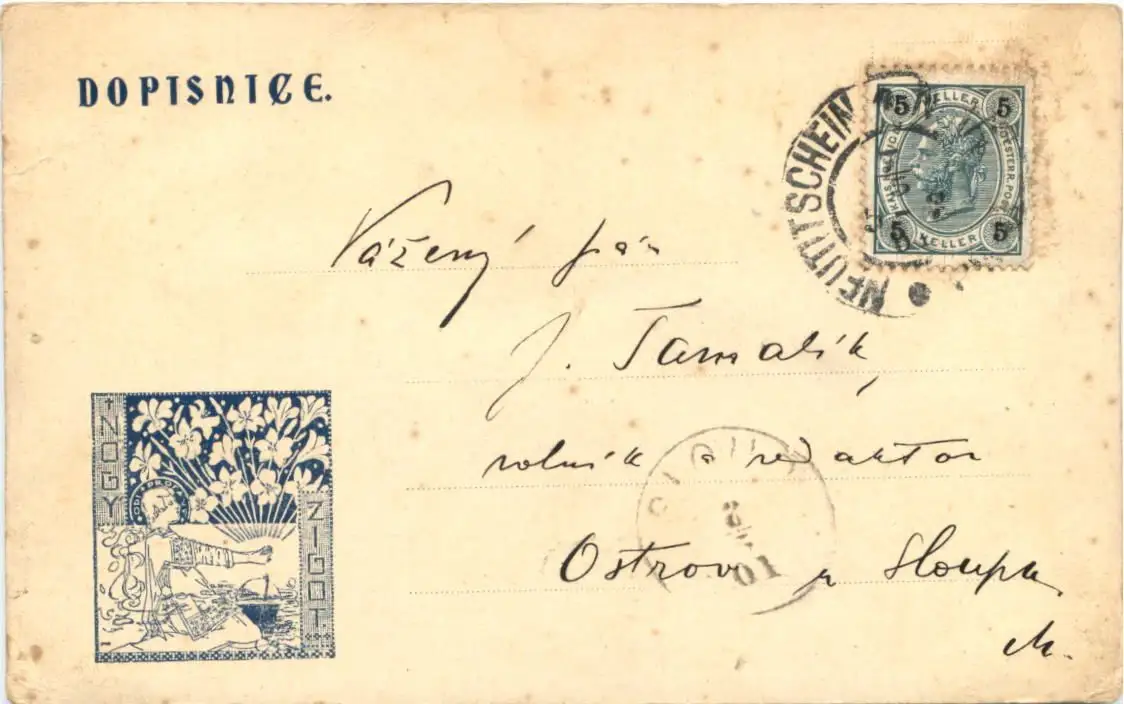 DOPISNICE.
5 HELLER 5
5 HELLER 5
NEUTITSCHEIN
Vážený pán
J. Tamalík,
rolník a redaktor
Ostrov u Sloupa
M.
NOGY
ZIGOT
01